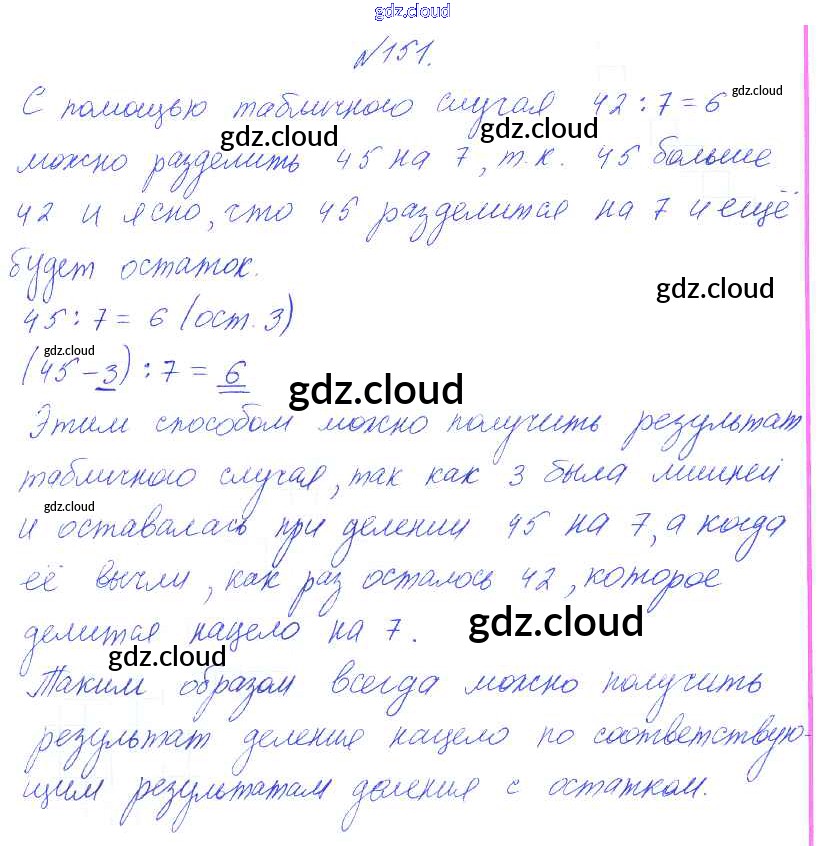 gdz.cloud
№151.
С помощью табличного случая 42 : 7 = 6 gdz.cloud
gdz.cloud gdz.cloud
можно разделить 45 на 7, т.к. 45 больше
42 и ясно, что 45 разделится на 7 и ещё
будет остаток.
gdz.cloud
45 : 7 = 6 (ост. 3)
gdz.cloud
(45 - 3) : 7 = 6
gdz.cloud
Этим способом можно получить результат
табличного случая, так как 3 была лишней
gdz.cloud
и оставалась при делении 45 на 7, а когда
её вычли, как раз осталось 42, которое
делится нацело на 7. gdz.cloud
gdz.cloud
Таким образом всегда можно получить
результат деления нацело по соответствую-
щим результатам деления с остатком.